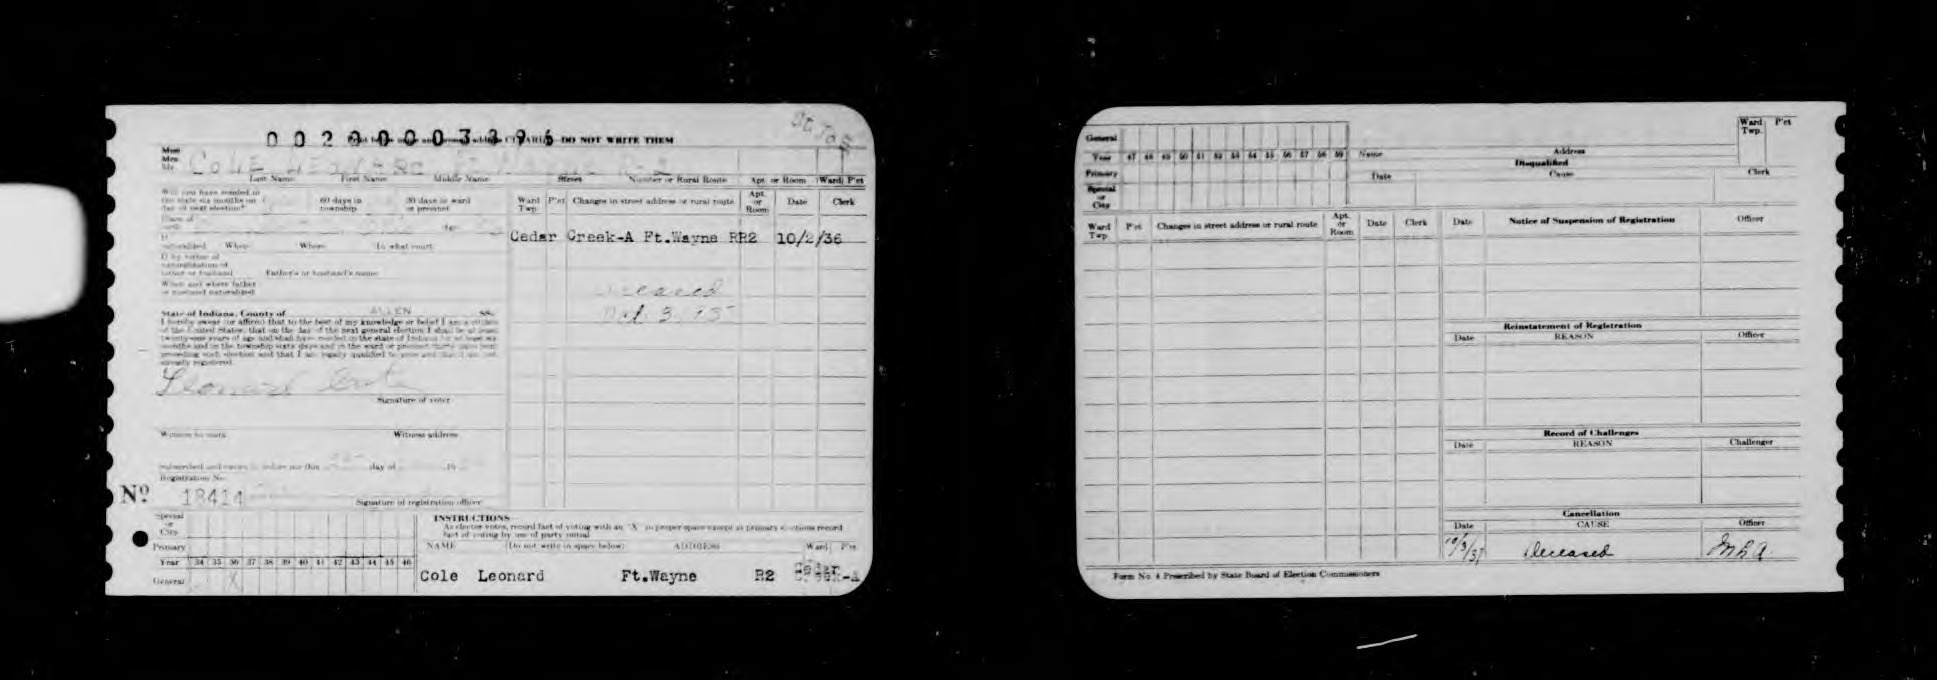 0020003396
DO NOT WRITE THEM
St Joe
Miss
Mrs.
Mr.
COLE LEONARD R-2
Last Name First Name Middle Name Street Number or Rural Route Apt. or Room Ward P'ct
Will you have resided in
the state six months on
day of next election?
60 days in
township
30 days in ward
or precinct
Ward
Twp.
P'ct
Changes in street address or rural route
Apt.
or
Room
Date
Clerk
Cedar Creek-A Ft.Wayne RR2 10/2/36
If
naturalized When Where In what court
If by virtue of
naturalization of
father or husband Father's or husband's name
When and where father
or husband naturalized
deceased
State of Indiana, County of ALLEN SS.
I hereby swear (or affirm) that to the best of my knowledge or belief I am a citizen
of the United States, that on the day of the next general election I shall be at least
twenty-one years of age and shall have resided in the state of Indiana for at least six
months and in the township sixty days and in the ward or precinct thirty days next
preceding such election and that I am legally qualified to vote and that I am not
already registered.
Leonard Cole
Signature of voter
Witness to mark Witness address
Subscribed and sworn to before me this day of 19
Registration No.
Nº 18414
Signature of registration officer
Special
or
City
Primary
Year 34 35 36 37 38 39 40 41 42 43 44 45 46
General X
INSTRUCTIONS
As elector votes, record fact of voting with an "X" in proper space except at primary elections record
fact of voting by use of party initial
NAME (Do not write in space below) ADDRESS Ward P'ct
Cole Leonard Ft.Wayne R2 Cedar
Creek-A
General
Year 47 48 49 50 51 52 53 54 55 56 57 58 59
Primary
Special
or
City
Name Address
Ward
Twp.
P'ct
Disqualified
Date Cause Clerk
Ward
Twp.
P'ct
Changes in street address or rural route
Apt.
or
Room
Date
Clerk
Date Notice of Suspension of Registration Officer
Reinstatement of Registration
Date REASON Officer
Record of Challenges
Date REASON Challenger
Cancellation
Date CAUSE Officer
10/3/37 Deceased
Form No. 4 Prescribed by State Board of Election Commissioners